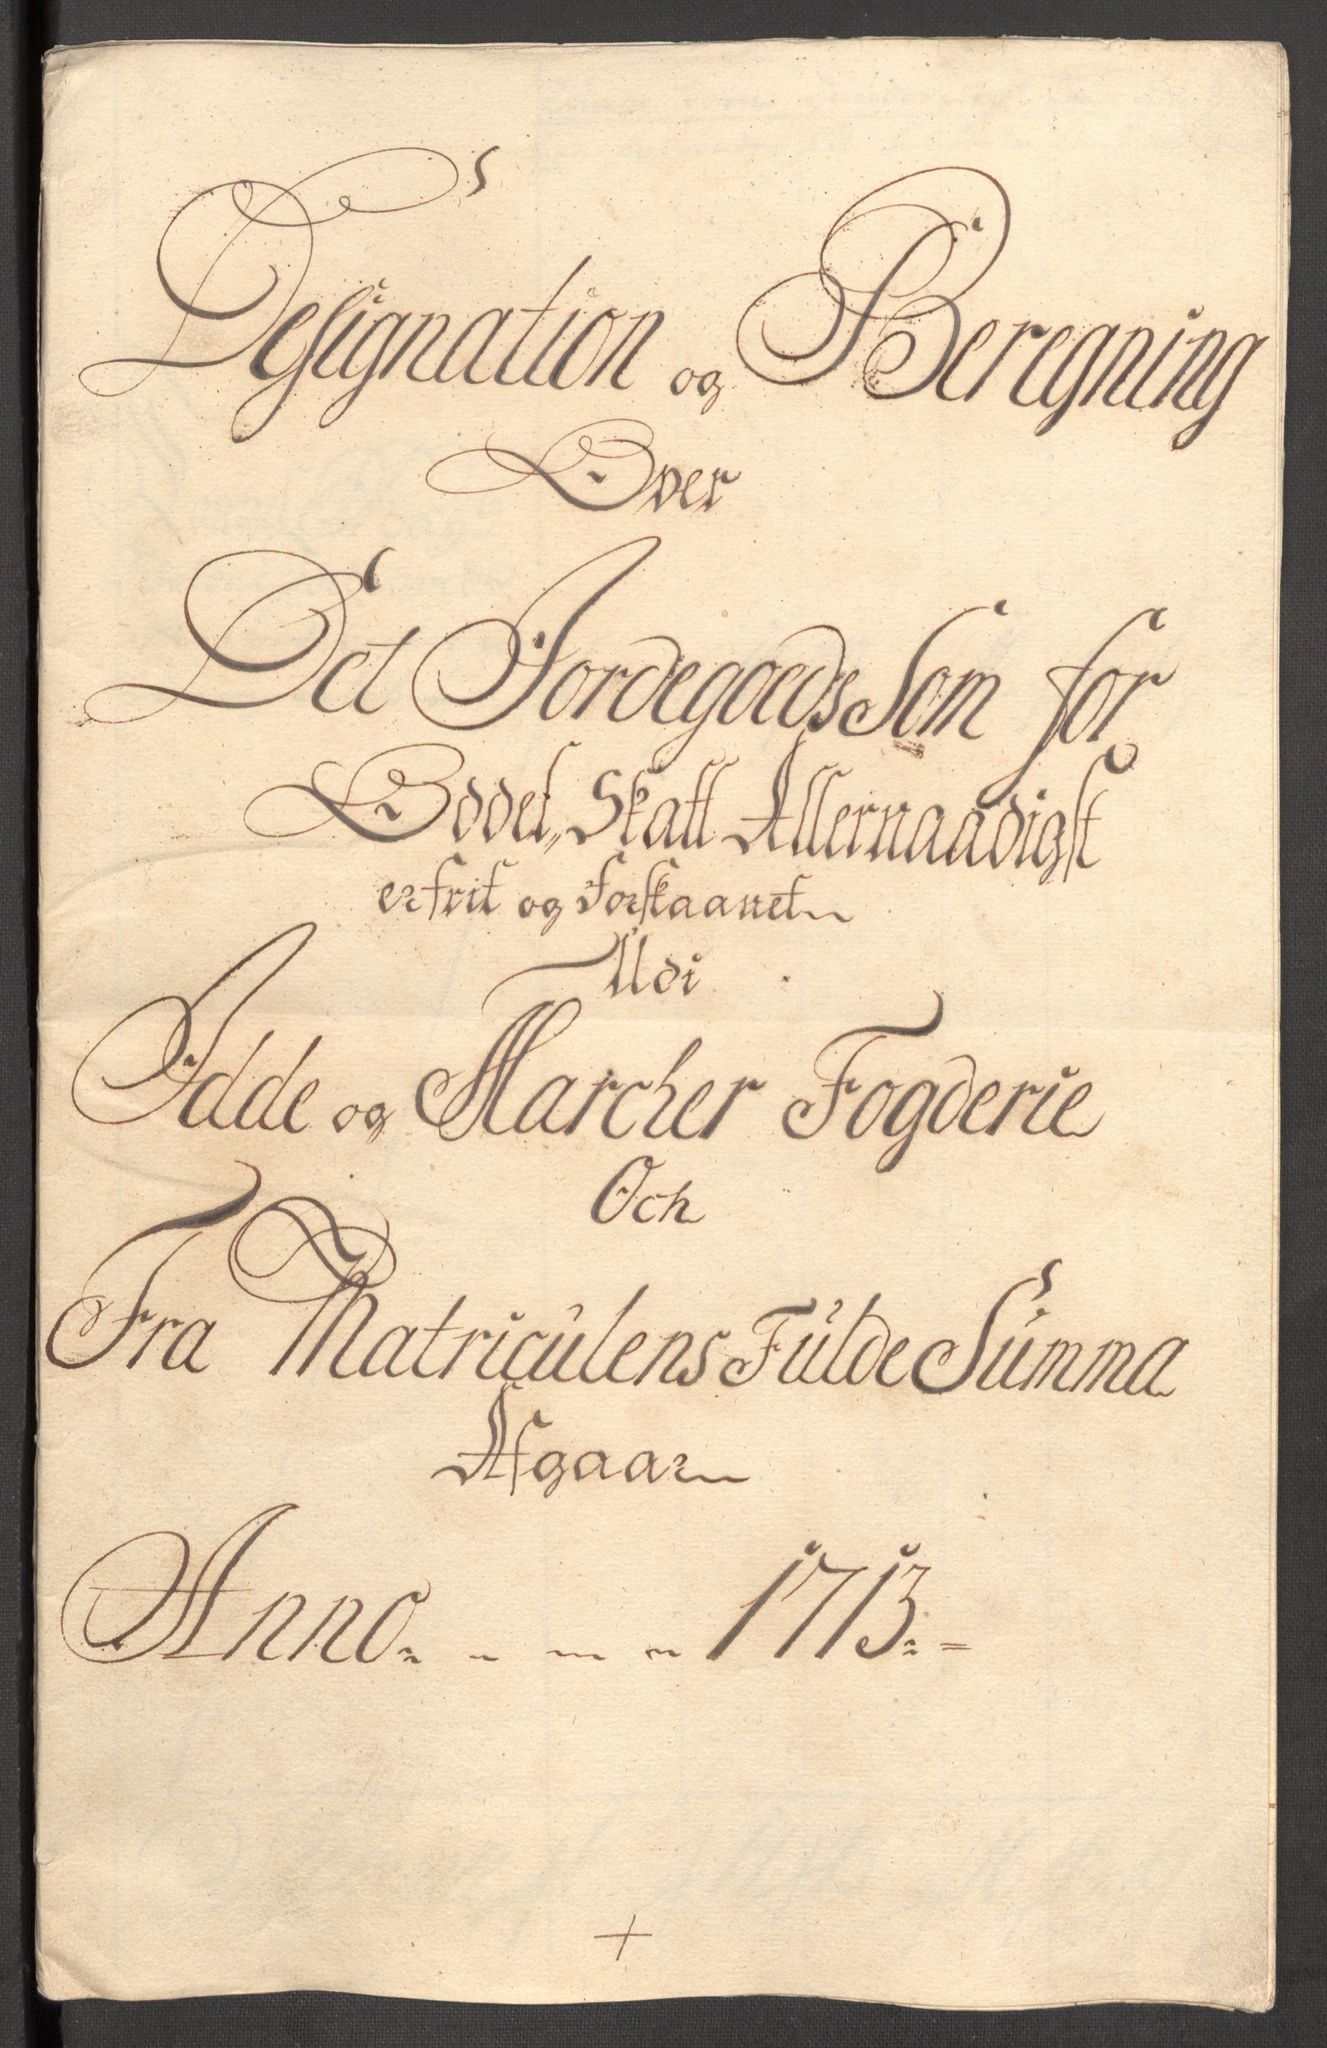 Designation og Beregning
Over
Det Jordegoeds Som for
Oddel,, Skatt Allernaadigst
er frit og forskaanet
Udi
Idde og Marcher Fogderie
Och
Fra Matriculens Fulde Summa
Afgaar
Anno 1713